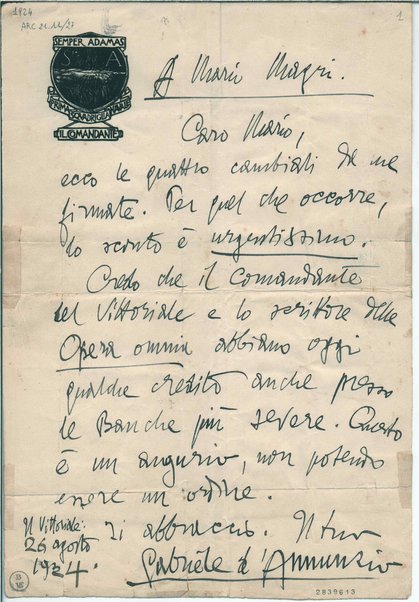 1924
ARC 21.11/27
1
SEMPER ADAMAS
S A
PRIMA SQUADRIGLIA NAVALE
IL COMANDANTE
A Mario Magri.
Caro Mario,
ecco le quattro cambiali da me
firmate. Per quel che occorre,
lo sconto è urgentissimo.
Credo che il comandante
del Vittoriale e lo scrittore delle
Opera omnia abbiano oggi
qualche credito anche presso
le Banche più severe. Questo
è un augurio, non potendo
essere un ordine.
Ti abbraccio. Il tuo
Gabriele d'Annunzio
Il Vittoriale:
26 agosto
1924.
2839613